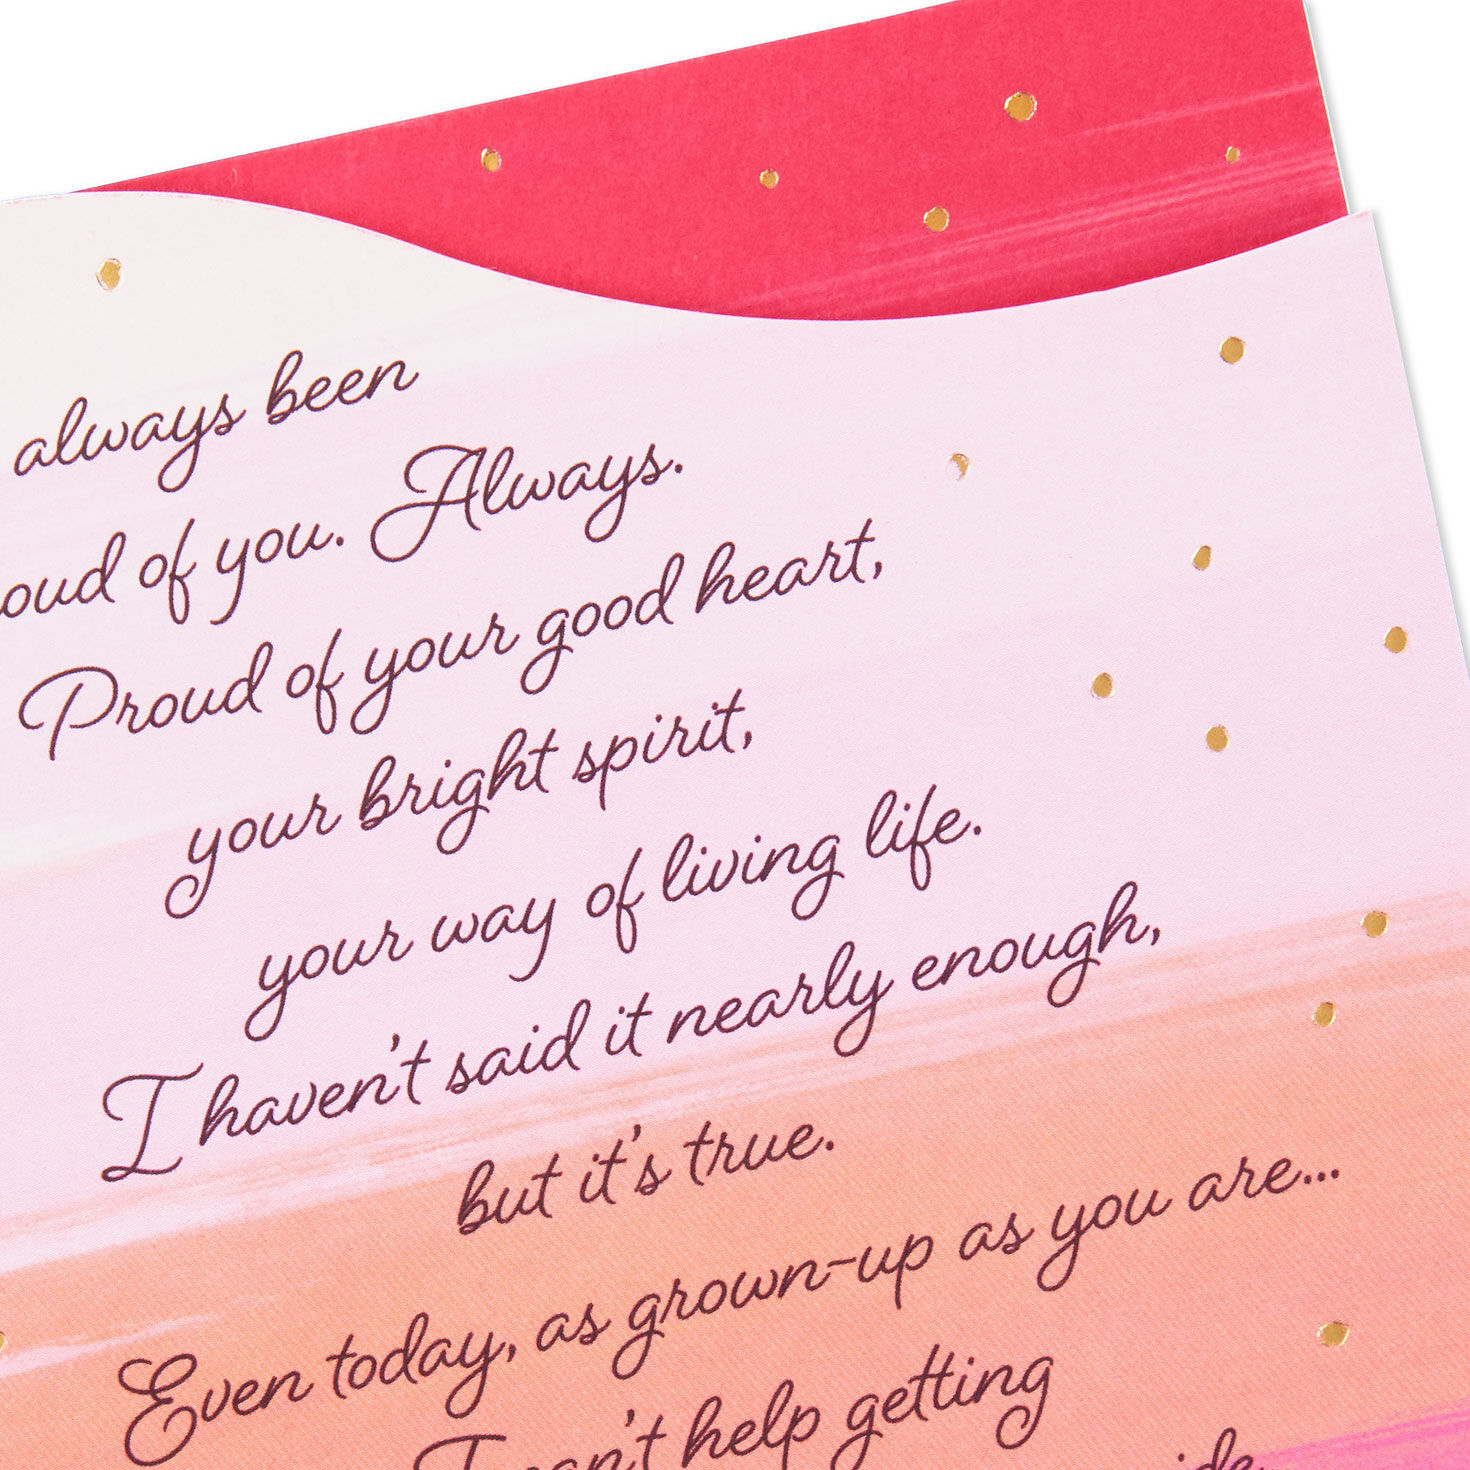 always been
oud of you. Always.
Proud of your good heart,
your bright spirit,
your way of living life.
I haven't said it nearly enough,
but it's true.
Even today, as grown-up as you are...
I can't help getting